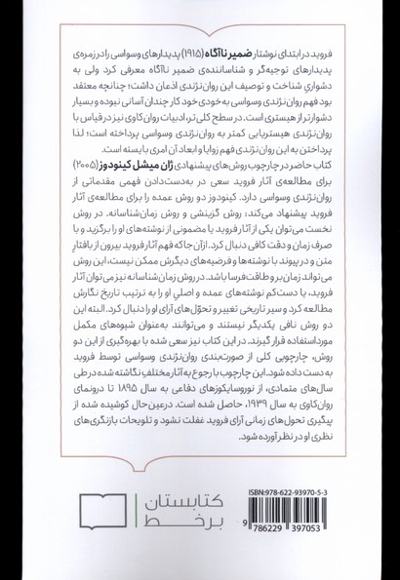 فروید در ابتدای نوشتار ضمیر ناآگاه (۱۹۱۵) پدیدارهای وسواسی را در زمره‌ی
پدیدارهای توجیه‌گر و شناساننده‌ی ضمیر ناآگاه معرفی کرد ولی به
دشواریِ شناخت و توصیف این روان‌نژندی اذعان داشت؛ چنانچه معتقد
بود فهم روان‌نژندی وسواسی به‌خودی‌خود کار چندان آسانی نبوده و بسیار
دشوارتر از هیستری است. در سطح کلی‌تر، ادبیات روان‌کاوی نیز در قیاس با
روان‌نژندی هیستریایی کمتر به روان‌نژندی وسواسی پرداخته است؛ لذا
پرداختن به این روان‌نژندی فهم زوایا و ابعاد آن امری بایسته است.
کتاب حاضر در چارچوب روش‌های پیشنهادی ژان میشل کینودوز (۲۰۰۵)
برای مطالعه‌ی آثار فروید سعی در به‌دست‌دادن فهمی مقدماتی از
روان‌نژندی وسواسی دارد. کینودوز دو روش عمده را برای مطالعه‌ی آثار
فروید پیشنهاد می‌کند: روش گزینشی و روش زمان‌شناسانه. در روش
نخست می‌توان یکی از آثار فروید یا مضمونی از نوشته‌های او را برگزید و با
صرف زمان و دقت کافی دنبال کرد. ازآن‌جاکه فهم آثار فروید بیرون از بافتارِ
متن و در پیوند با نوشته‌ها و فرضیه‌های دیگرش ممکن نیست، این روش
می‌تواند زمان‌بر و طاقت‌فرسا باشد. در روش زمان‌شناسانه نیز می‌توان آثار
فروید، یا دست‌کم نوشته‌های عمده و اصلیِ او را به ترتیب تاریخ نگارش
مطالعه کرد و سیر تاریخی تغییر و تحوّل‌های آرای او را دنبال کرد. البته این
دو روش نافی یکدیگر نیستند و می‌توانند به‌عنوان شیوه‌های مکمل
مورداستفاده قرار گیرند. در این کتاب نیز سعی شده با بهره‌گیری از این دو
روش، چارچوبی کلی از صورت‌بندی روان‌نژندی وسواسی توسط فروید
به دست داده شود. این چارچوب با رجوع به آثار مختلفِ نگاشته شده در طی
سال‌های متمادی، از نوروسایکوزهای دفاعی به سال ۱۸۹۵ تا درون‌مای
روان‌کاوی به سال ۱۹۳۹، حاصل شده است. در عین‌حال کوشیده شده از
پیگیری تحول‌های زمانی آرای فروید غفلت نشود و تلویحات بازنگری‌های
نظری او در نظر آورده شود.
کتابستان
برخط
ISBN:978-622-93970-5-3
9 786229 397053